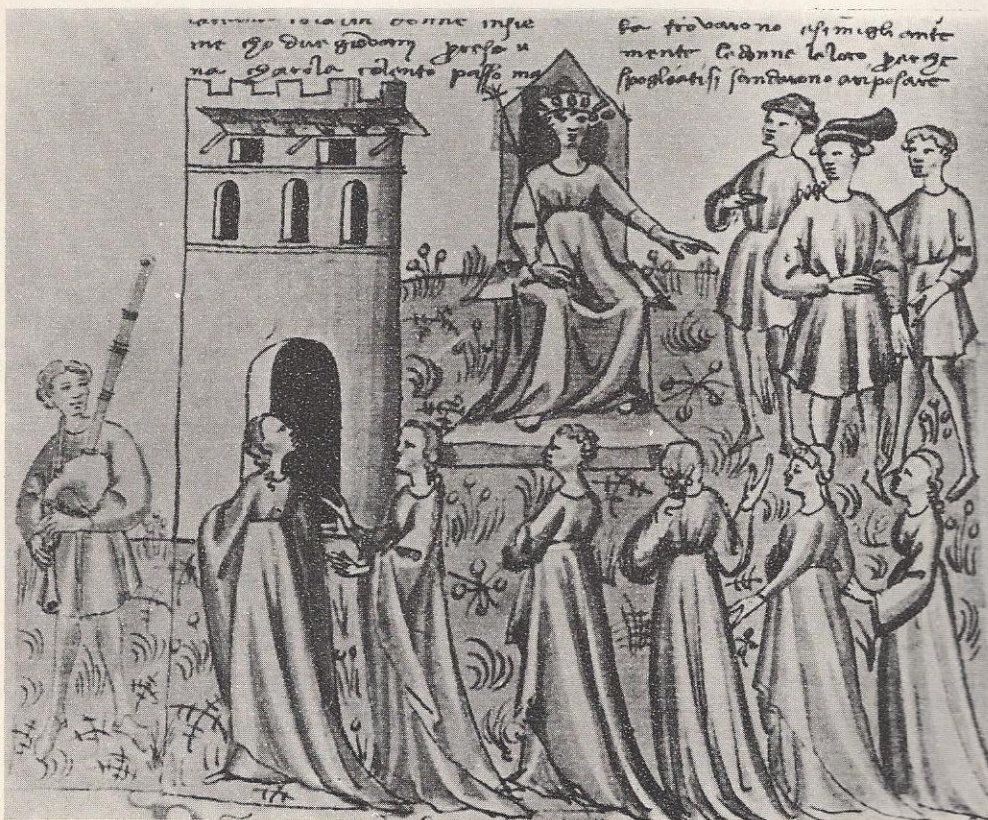 donne insie
me cho due giovani presa u
na charola colento passo ma
ta trovarono esimigli ante
mente le donne la loro perche
spogliatisi sandarono ariposare